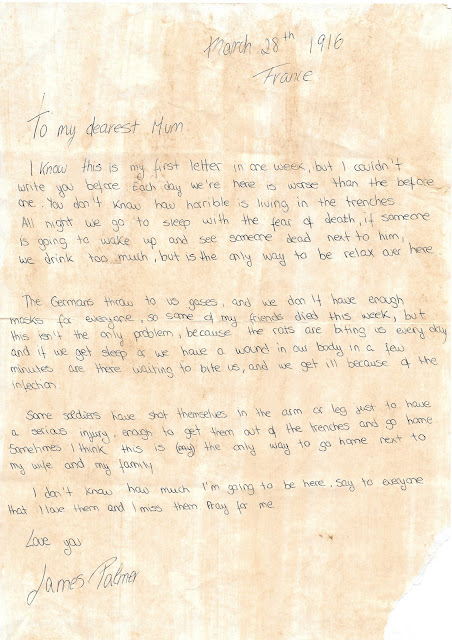 March 28th 1916
France
To my dearest Mum
I know this is my first letter in one week, but I couldn't
write you before. Each day we're here is worse than the before
one. You don't know how horrible is living in the trenches
All night we go to sleep with the fear of death, if someone
is going to wake up and see someone dead next to him,
we drink too much, but is the only way to be relax over here
The Germans throw to us gases, and we don't have enough
masks for everyone, so some of my friends died this week, but
this isn't the only problem, because the rats are biting us every day
and if we get sleep or we have a wound in our body in a few
minutes are there waiting to bite us, and we get ill because of the
infection
Some soldiers have shot themselves in the arm or leg just to have
a serious injury, enogh to get them out of the trenches and go home
Sometimes I think this is the only way to go home next to
my wife and my family
I don't know how much I'm going to be here, say to everyone
that I love them and I miss them. Pray for me
Love you
James Palmer